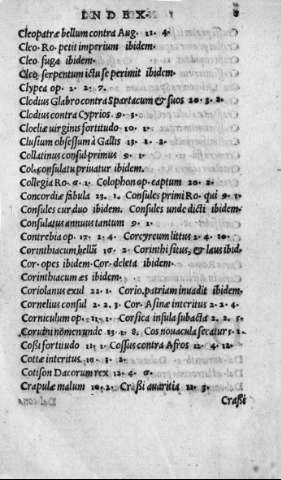 INDEX 8
Cleopatræ bellum contra Aug. 11. 4.
Cleo. Ro. petit imperium ibidem.
Cleo fuga ibidem.
Cleo serpentum ictu se perimit ibidem.
Clypea op. 2. 2. 7.
Clodius Glabro contra Spartacum & suos 20. 3. 2.
Clodius contra Cyprios 9. 3.
Cloeliæ uirginis fortitudo 10. 1.
Clusium obsessum à Gallis 13. 2. 2.
Collatinus consul primus 9. 1.
Col. consulatu priuatur ibidem.
Collegia Ro. 6. 1. Colophon op. captum 20. 2.
Concordiæ fabula 23. 1. Consules primi Ro. qui 9. 1.
Consules cur duo ibidem. Consules unde dicti ibidem.
Consulatus annuus tantum 9. 1.
Contrebia op. 17. 2. 4. Corcyreum littus 2. 4. 10.
Corinthiacum bellū 16. 2. Corinthi situs, & laus ibid.
Cor. opes ibidem. Cor. deleta ibidem.
Corinthiacum æs ibidem.
Coriolanus exul 22. 1. Corio. patriam inuadit ibidem.
Cornelius consul 2. 2. 3. Cor. Asinæ interitus 2. 2. 4.
Corniculum op. 11. 1. Corsica insula subacta 2. 2. 5.
Coruini nomen unde 13. 1. 8. Cos nouacula secatur 5. 2.
Cossi fortitudo 11. 1. Cossus contra Afros 12. 4. 12.
Cottæ interitus. 10. 3. 2.
Cotison Dacorum rex 12. 4. 6.
Crapulæ malum 10. 2. Crassi auaritia 11. 3.
Crassi